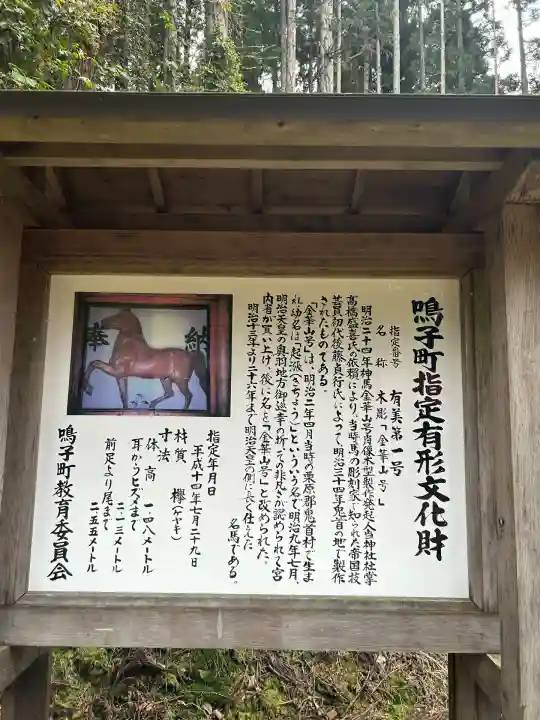 鳴子町指定有形文化財
指定番号　有美第一号
名称　木彫「金華山号」
明治二十四年神馬金華山号肖像木型製作発起人当神社社掌
高橋盛喜氏の依頼により、当時馬の彫刻家で知られた帝国技
芸員初代後藤貞行氏によって明治三十四年鬼首の地で製作
されたものである。
「金華山号」は、明治二年四月当時の栗原郡鬼首村で生ま
れ、幼名は「起漲(きちょう)」といういう名で明治九年七月、
明治天皇の奥羽地方御巡幸の折、その非凡さが認められて宮
内省が買い上げ、後に名を「金華山号」と改められた。
明治十三年より二十六年まで明治天皇の側に長く仕えた
名馬である。
奉納
指定年月日
平成十四年七月二十九日
材質　欅(ケヤキ)
寸法
体高　一四八メートル
耳からヒズメまで
二・一三メートル
前足より尾まで
二・五五メートル
鳴子町教育委員会